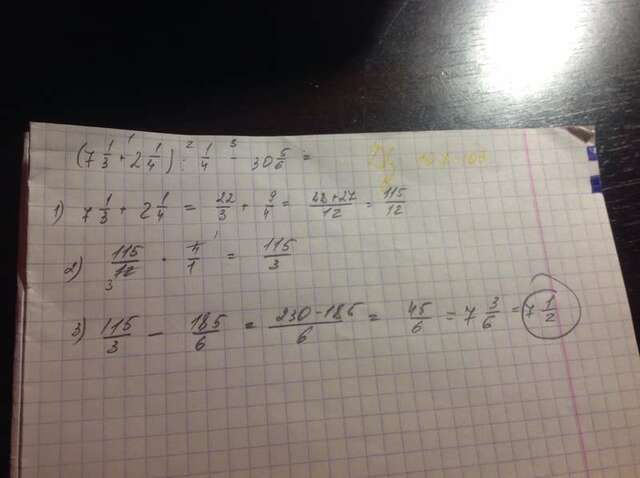 (7 1/3 + 2 1/4) : 1/4 - 30 5/6 =
1) 7 1/3 + 2 1/4 = 22/3 + 9/4 = 88+27/12 = 115/12
2) 115/12 · 4/1 = 115/3
3) 115/3 - 185/6 = 230-185/6 = 45/6 = 7 3/6 = 7 1/2